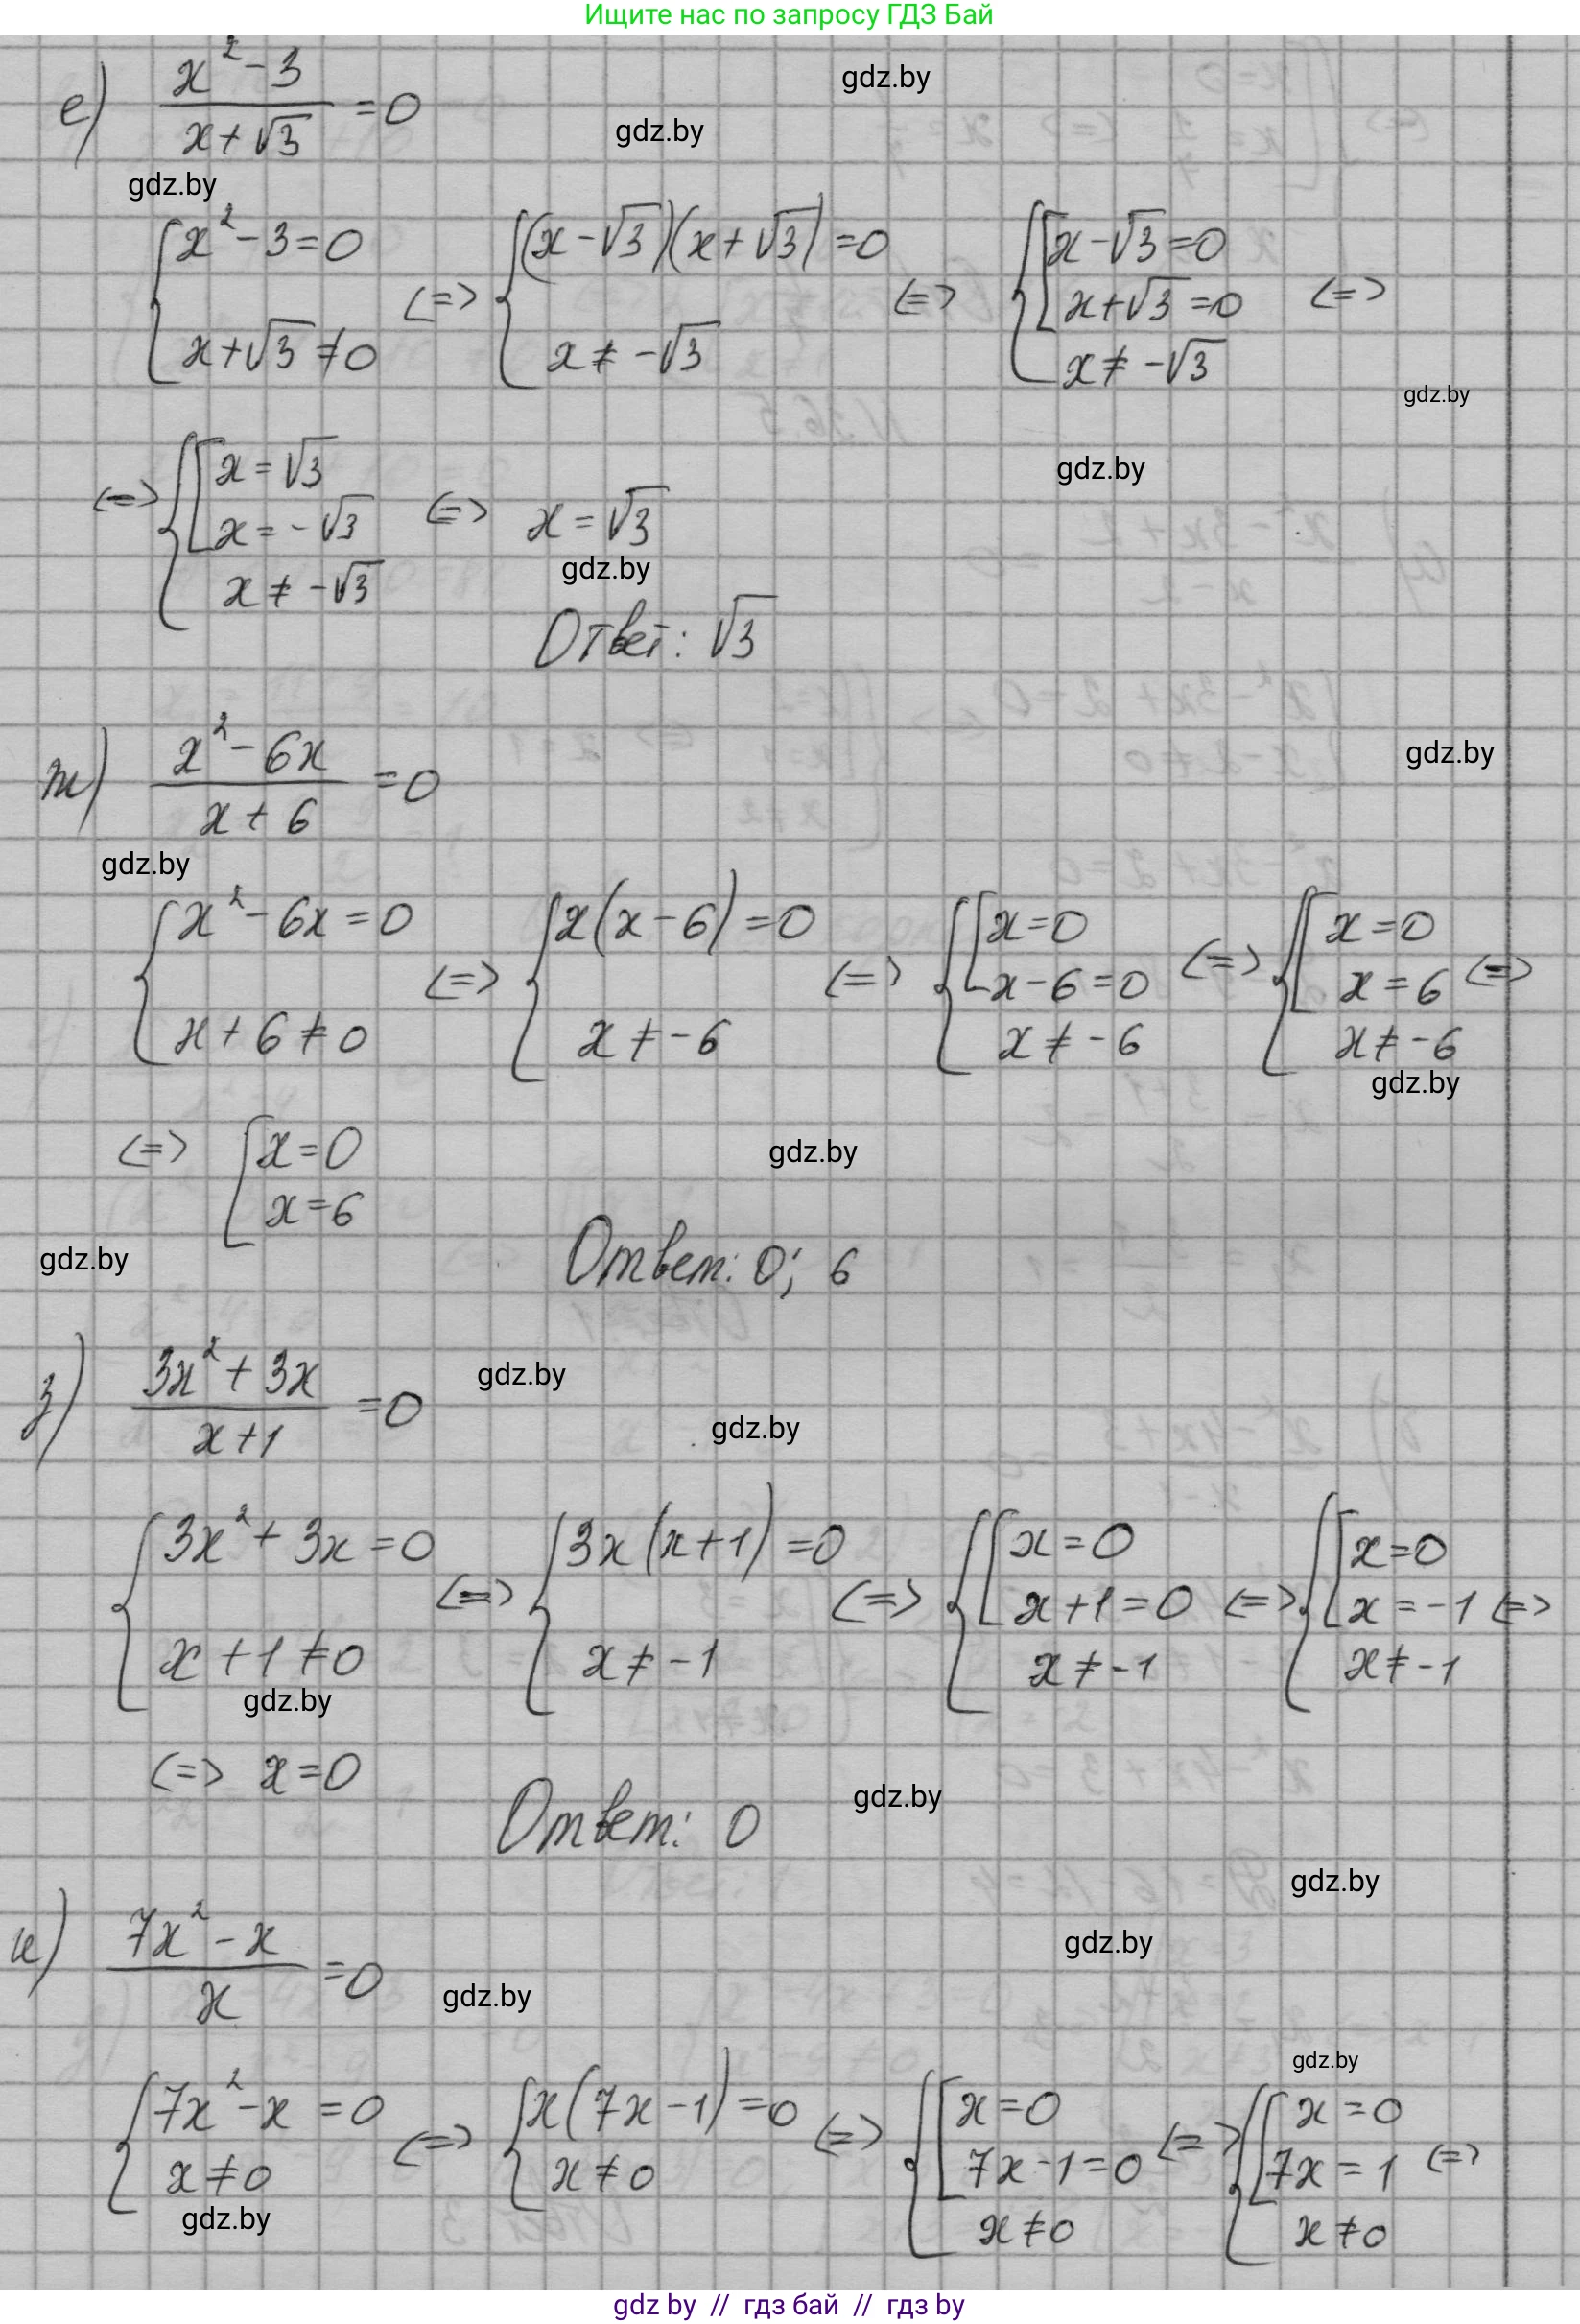 Ищите нас по запросу ГДЗ Бай
gdz.by
е) (x² - 3)/(x + √3) = 0
gdz.by
gdz.by
{ x² - 3 = 0; x + √3 ≠ 0 <=> { (x - √3)(x + √3) = 0; x ≠ -√3 <=> { [ x - √3 = 0; x + √3 = 0; x ≠ -√3 <=>
gdz.by
gdz.by
<=> { [ x = √3; x = -√3; x ≠ -√3 <=> x = √3
gdz.by
Ответ: √3
ж) (x² - 6x)/(x + 6) = 0
gdz.by
gdz.by
{ x² - 6x = 0; x + 6 ≠ 0 <=> { x(x - 6) = 0; x ≠ -6 <=> { [ x = 0; x - 6 = 0; x ≠ -6 <=> { [ x = 0; x = 6; x ≠ -6 <=>
gdz.by
<=> [ x = 0; x = 6
gdz.by
gdz.by
Ответ: 0; 6
з) (3x² + 3x)/(x + 1) = 0
gdz.by
gdz.by
{ 3x² + 3x = 0; x + 1 ≠ 0 <=> { 3x(x + 1) = 0; x ≠ -1 <=> { [ x = 0; x + 1 = 0; x ≠ -1 <=> { [ x = 0; x = -1; x ≠ -1 <=>
gdz.by
<=> x = 0
Ответ: 0
gdz.by
gdz.by
и) (7x² - x)/x = 0
gdz.by
gdz.by
gdz.by
{ 7x² - x = 0; x ≠ 0 <=> { x(7x - 1) = 0; x ≠ 0 <=> { [ x = 0; 7x - 1 = 0; x ≠ 0 <=> { [ x = 0; 7x = 1; x ≠ 0 <=>
gdz.by
gdz by // гдз бай // гдз by